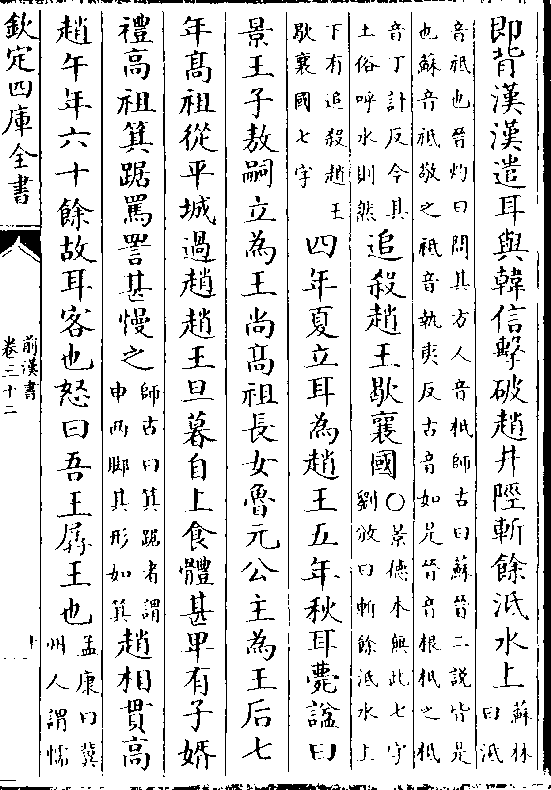 即背漢漢遣耳與韓信擊破趙井陘斬餘泜水上蘇林曰泜
音祗也晉灼曰問其方人音柢師古曰蘇晉二說皆是
也蘇音祗敬之祗音執夷反古音如是晉音根柢之柢
音丁計反今其土俗呼水則然追殺趙王歇襄國○景德本無此七字劉攽曰斬餘泜水上
下有追殺趙王歇襄國七字四年夏立耳為趙王五年秋耳薨諡曰
景王子敖嗣立為王尚高祖長女魯元公主為王后七
年高祖從平城過趙趙王旦暮自上食體甚卑有子婿
禮高祖箕踞罵詈甚慢之師古曰箕踞者謂申兩脚其形如箕趙相貫高
趙午年六十餘故耳客也怒曰吾王孱王也孟康曰冀州人謂懦
欽定四庫全書
前漢書
卷三十二
十